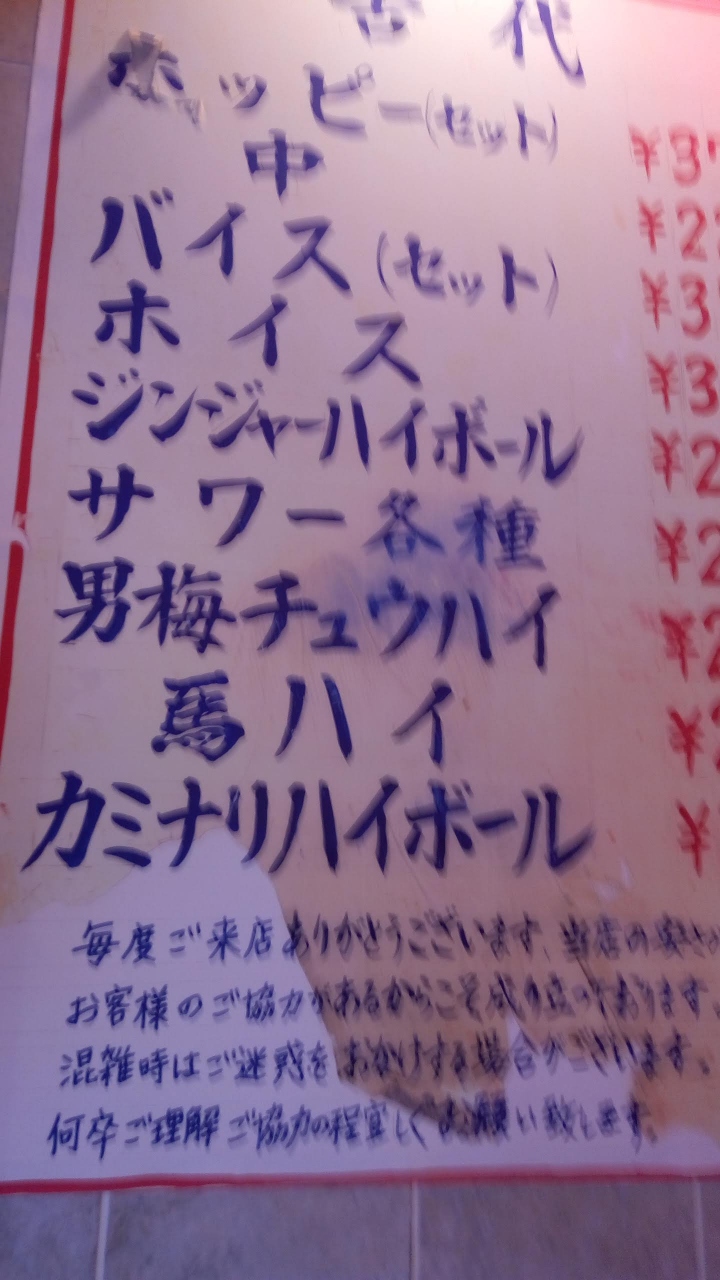 古代
ホッピー(セット)
中 ¥3
バイス(セット) ¥2
ホイス ¥3
ジンジャーハイボール ¥3
サワー各種 ¥2
男梅チュウハイ ¥2
馬ハイ ¥2
カミナリハイボール ¥2
¥
毎度ご来店ありがとうございます、当店の安さは
お客様のご協力があるからこそ成り立っております。
混雑時はご迷惑をおかけする場合がございます。
何卒ご理解ご協力の程宜しくお願い致します。